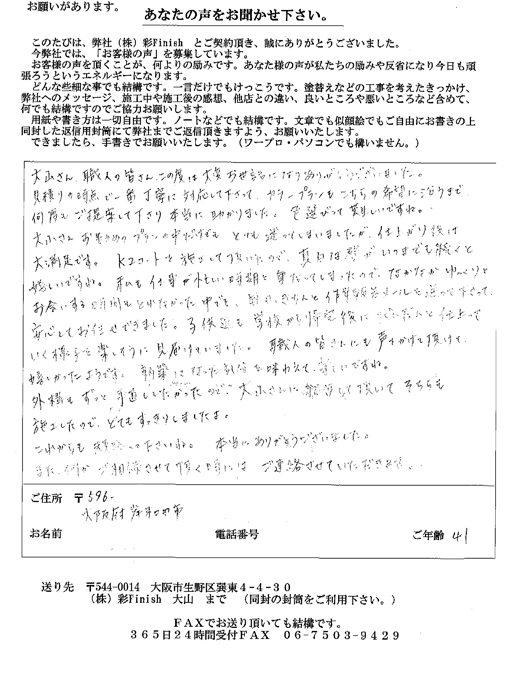 お願いがあります。
あなたの声をお聞かせ下さい。
このたびは、弊社（株）彩Finish とご契約頂き、誠にありがとうございました。
今弊社では、「お客様の声」を募集しています。
お客様の声を頂くことが、何よりの励みです。あなた様の声が私たちの励みや反省になり今日も頑
張ろうというエネルギーになります。
どんな些細な事でも結構です。一言だけでもけっこうです。塗替えなどの工事を考えたきっかけ、
弊社へのメッセージ、施工中や施工後の感想、他店との違い、良いところや悪いところなど含めて、
何でも結構ですのでご協力お願いします。
用紙や書き方は一切自由です。ノートなどでも結構です。文章でも似顔絵でもご自由にお書きの上
同封した返信用封筒にて弊社までご返信頂きますよう、お願いいたします。
できましたら、手書きでお願いいたします。（ワープロ・パソコンでも構いません。）
大山さん、職人の皆さん、この度は大変お世話になりありがとうございました。
見積りの時点で一番丁寧に対応して下さって、カラープランもこちらの希望に沿うまで
何度もご提案して下さり本当に助かりました。色選びって難しいですね。
大山さんお薦めのプランの中だけでも とても迷ってしまいましたが、仕上がり後は
大満足です。 K2コートを施工して頂いたので、真白な壁がいつまでも続くと
嬉しいですね。私も仕事が忙しい時期と重なってしまったので、なかなかゆっくりと
お会いする時間もとれなかった中でも、きちんと作業報告メールを送って下さって、
安心してお任せできました。子供達も学校から帰宅後にだんだんと仕上って
いく様子を楽しそうに見届けていました。 職人の皆さんにも声をかけて頂けて
嬉しかったようです。新築になった気分を味わえて、嬉しいですね。
外構もずっと手直ししたかったので、大山さんに紹介して頂いてそちらも
施工したので、とてもすっきりしましたよ。
これからも頑張って下さいね。 本当にありがとうございました。
また、何かご相談させて頂く時には ご連絡させていただきます。
ご住所 〒596-
大阪府岸和田市
お名前 電話番号 ご年齢 41
送り先 〒544-0014 大阪市生野区巽東4-4-30
（株）彩Finish 大山 まで （同封の封筒をご利用下さい。）
FAXでお送り頂いても結構です。
365日24時間受付FAX 06-7503-9429